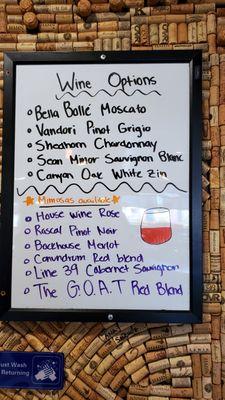 Wine Options
Bella Bollé Moscato
Vandori Pinot Grigio
Sheahorn Chardonnay
Sean Minor Sauvignon Blanc
Canyon Oak White Zin
Mimosas available
House Wine Rose
Rascal Pinot Noir
Backhouse Merlot
Conundrum Red blend
Line 39 Cabernet Sauvignon
The G.O.A.T Red Blend
ust Wash
Returning